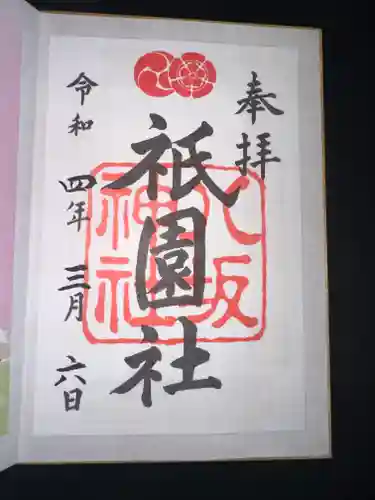 奉拝
祇園社
八坂
神社
令和四年三月六日